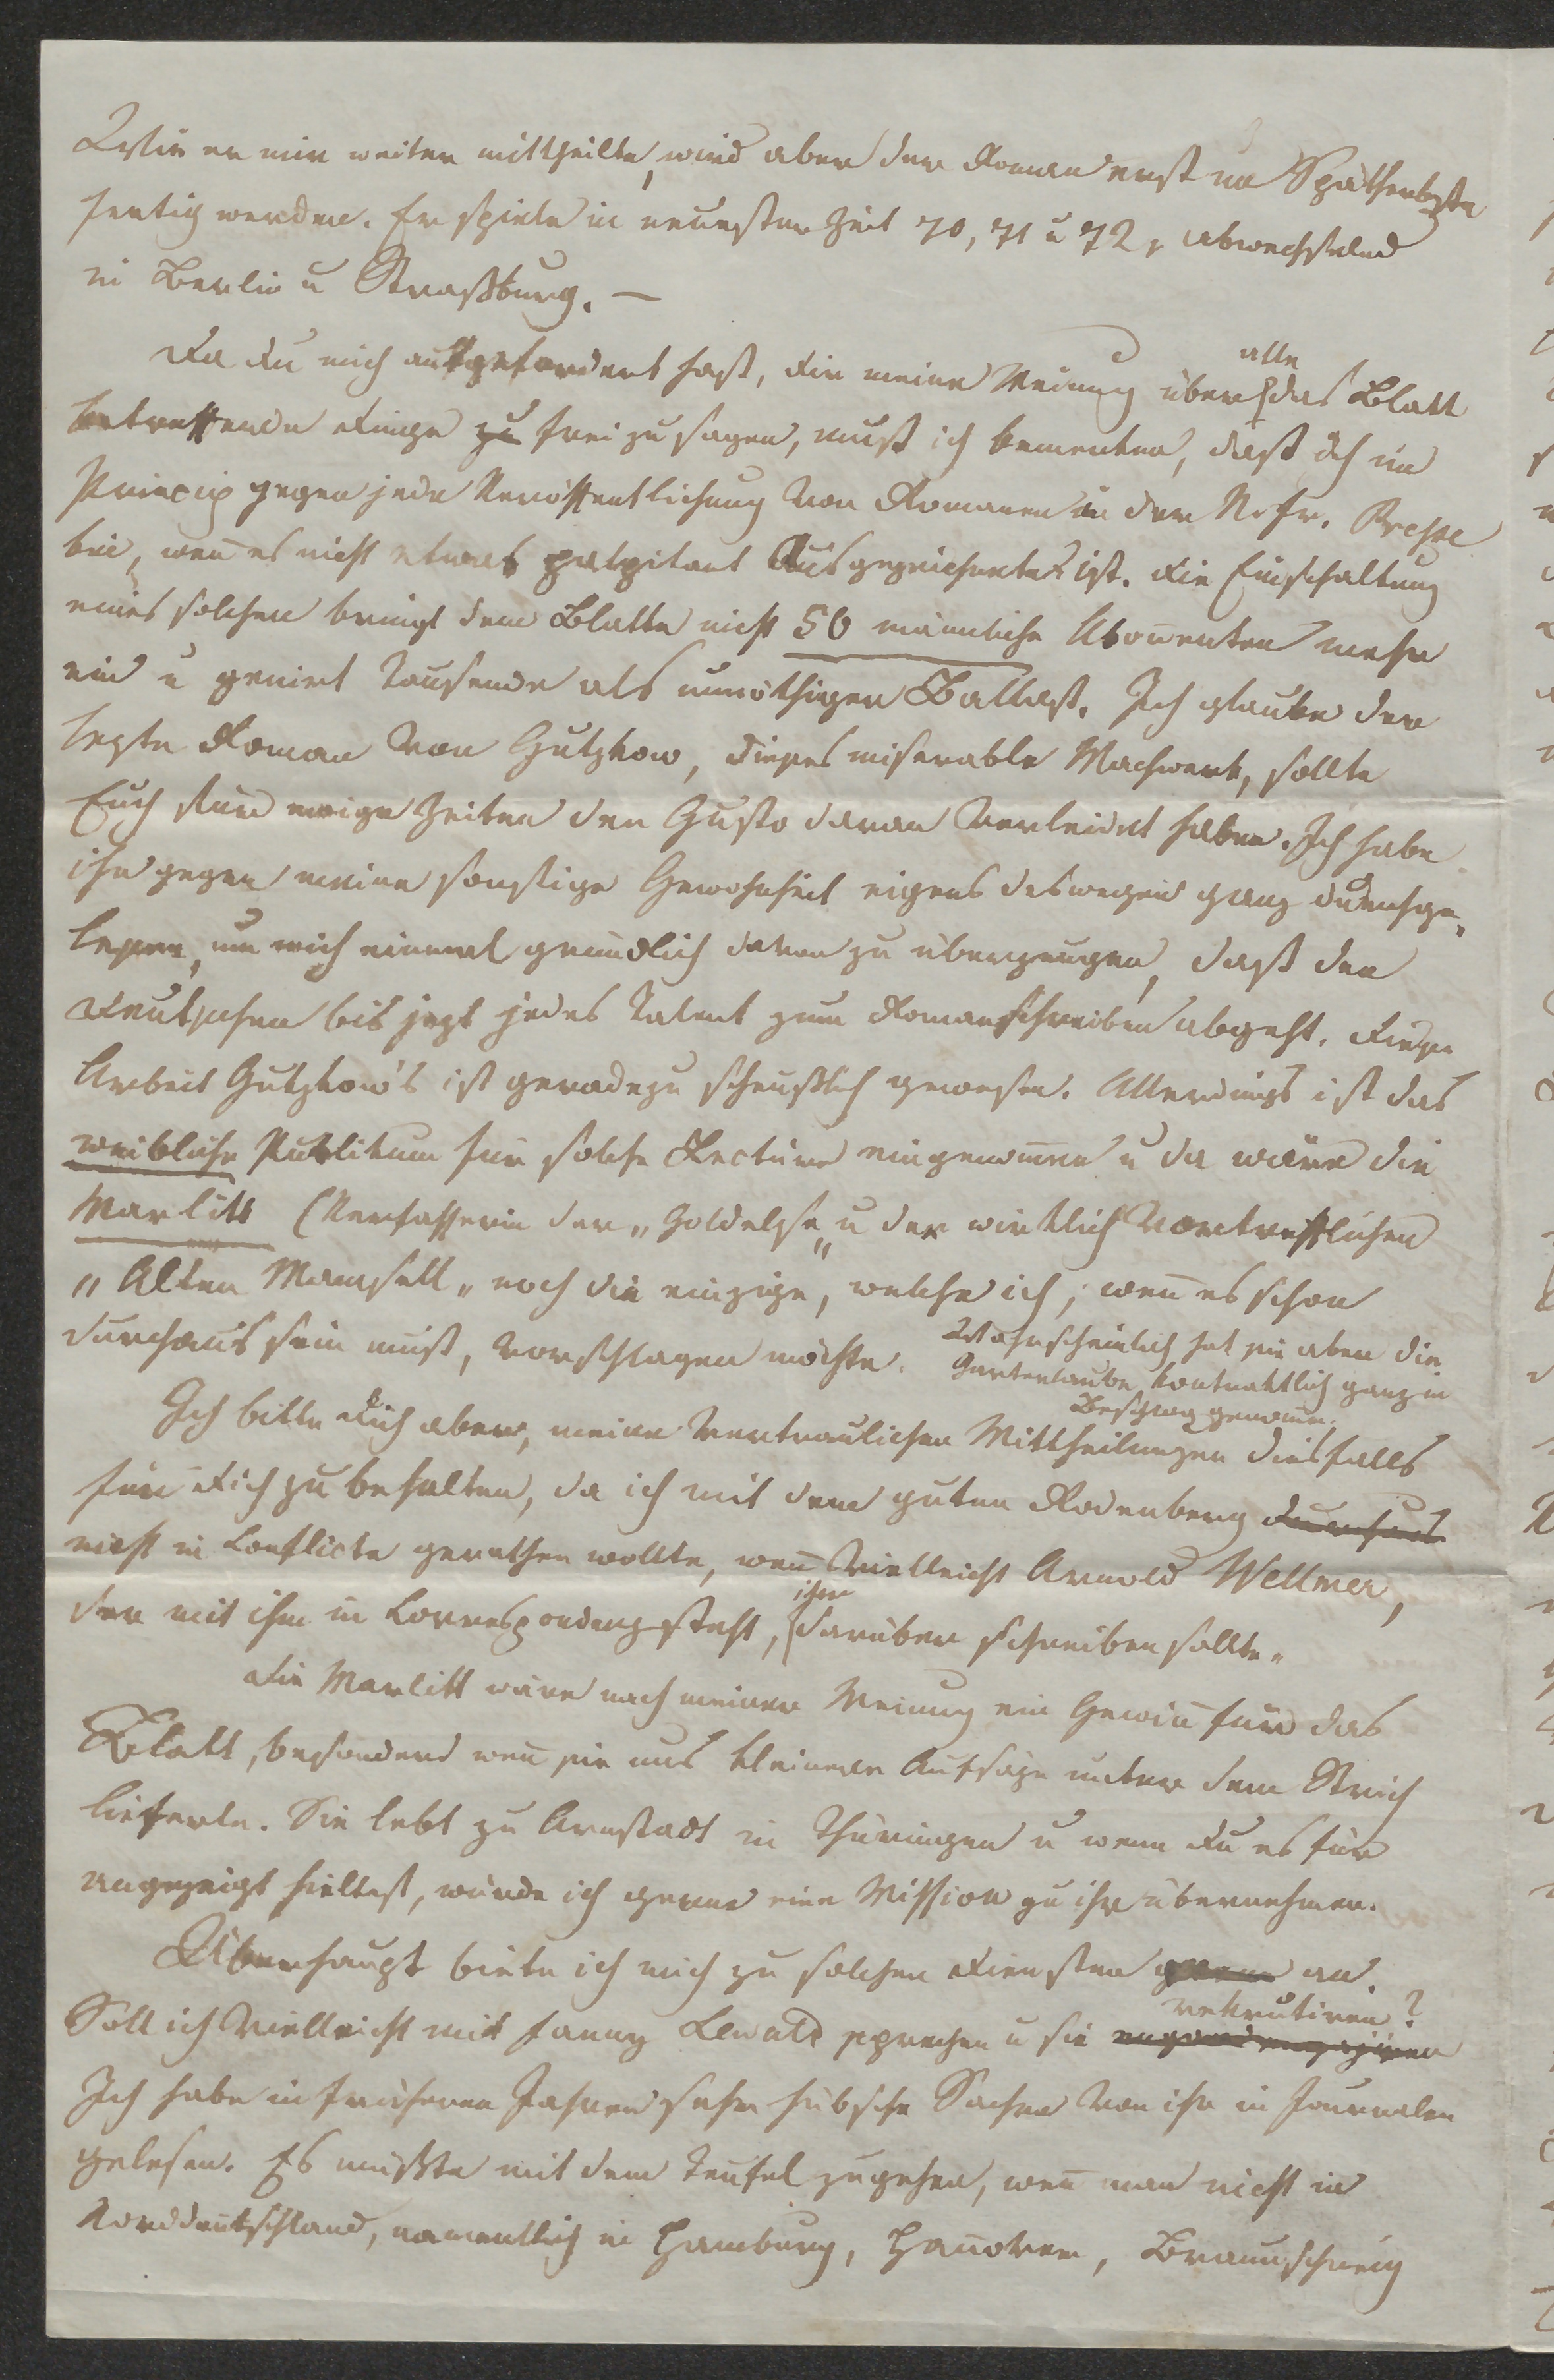 Wie er mir weiter mittheilte, wird aber der Roman erst im Spätherbste
fertig werden. Er spiele in neuester Zeit 70, 71 u 72, abwechselnd
in Berlin u Straßburg. —
Da du mich aufgefordert hast, dir meine Meinung über alle das Blatt
betreffende Dinge zu frei zu sagen, muß ich bemerken, daß ich im
Princip gegen jede Veröffentlichung von Romanen in der N. fr. Presse
bin, weñ es nicht etwas palpitant Ausgezeichnetes ist. Die Einschaltung
eines solchen bringt dem Blatte nicht 50 männliche Aboñenten mehr
ein u genirt Tausende als unnöthiger Ballast. Ich glaube der
lezte Roman von Gutzkow, dieses miserable Machwerk, sollte
Euch für ewige Zeiten den Gusto daran verleidet haben. Ich habe
ihn gegen meine sonstige Gewohnheit eigens deswegen ganz durchge-
lesen, um mich einmal gründlich davon zu überzeugen, daß den
Deutschen bis jezt jedes Talent zum Romanschreiben abgeht. Diese
Arbeit Gutzkow's ist geradezu scheußlich gewesen. Allerdings ist das
weibliche Publikum für solche Lectüre eingenom̃en u da wäre die
Marlitt (Verfasserin der „Goldelse„ u der wirklich vortrefflichen
„Alten Mamsell„ noch die einzige, welche ich, weñ es schon
durchaus sein muß, vorschlagen möchte. Wahrscheinlich hat sie aber die
Gartenlaube kontraktlich ganz in
Beschlag genom̃en.
Ich bitte Dich aber, meine vertraulichen Mittheilungen diesfalls
für Dich zu behalten, da ich mit dem guten Rodenberg durchaus
nicht in Conflicte gerathen wollte, weñ vielleicht Arnold Wellmer,
der mit ihm in Correspondenz steht, ihm darüber schreiben sollte.
Die Marlitt wäre nach meiner Meinung ein Gewiñ für das
Blatt, besonders weñ sie uns kleinere Aufsäze unter dem Strich
lieferte. Sie lebt zu Arnstadt in Thüringen u wenn Du es für
angezeigt hieltest, würde ich gerne eine Mission zu ihr übernehmen.
Überhaupt biete ich mich zu solchen Diensten gerne an.
Soll ich vielleicht mit Fanny Lewald sprechen u sie rekrutiren?
Ich habe in früheren Jahren sehr hübsche Sachen von ihr in Journalen
gelesen. Es müßte mit dem Teufel zugehen, weñ man nicht in
Norddeutschland, namentlich in Hamburg, Hañover, Braunschweig